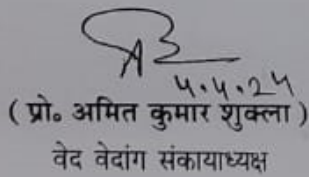 4.4.24
( प्रो० अमित कुमार शुक्ला )
वेद वेदांग संकायाध्यक्ष